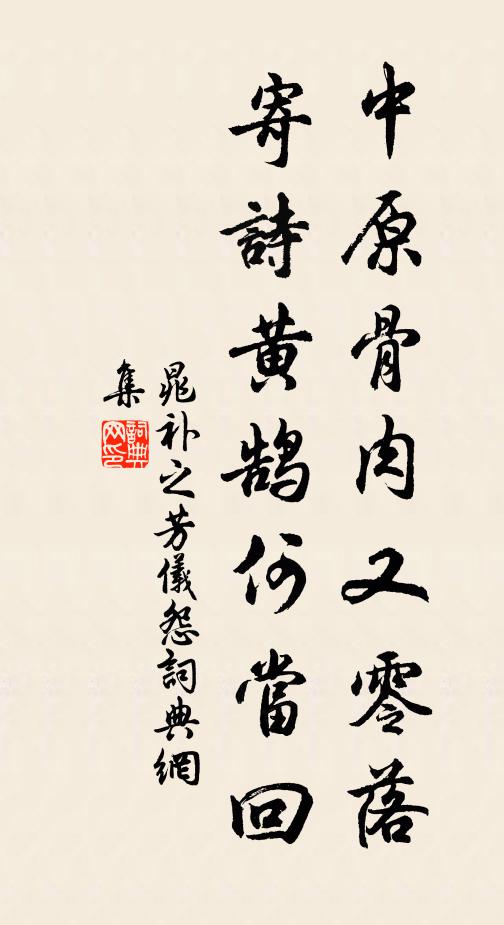 中原骨肉又零落
寄詩黃鵠何當回
晁补之芳儀怨詞典網
集
詞典
网印